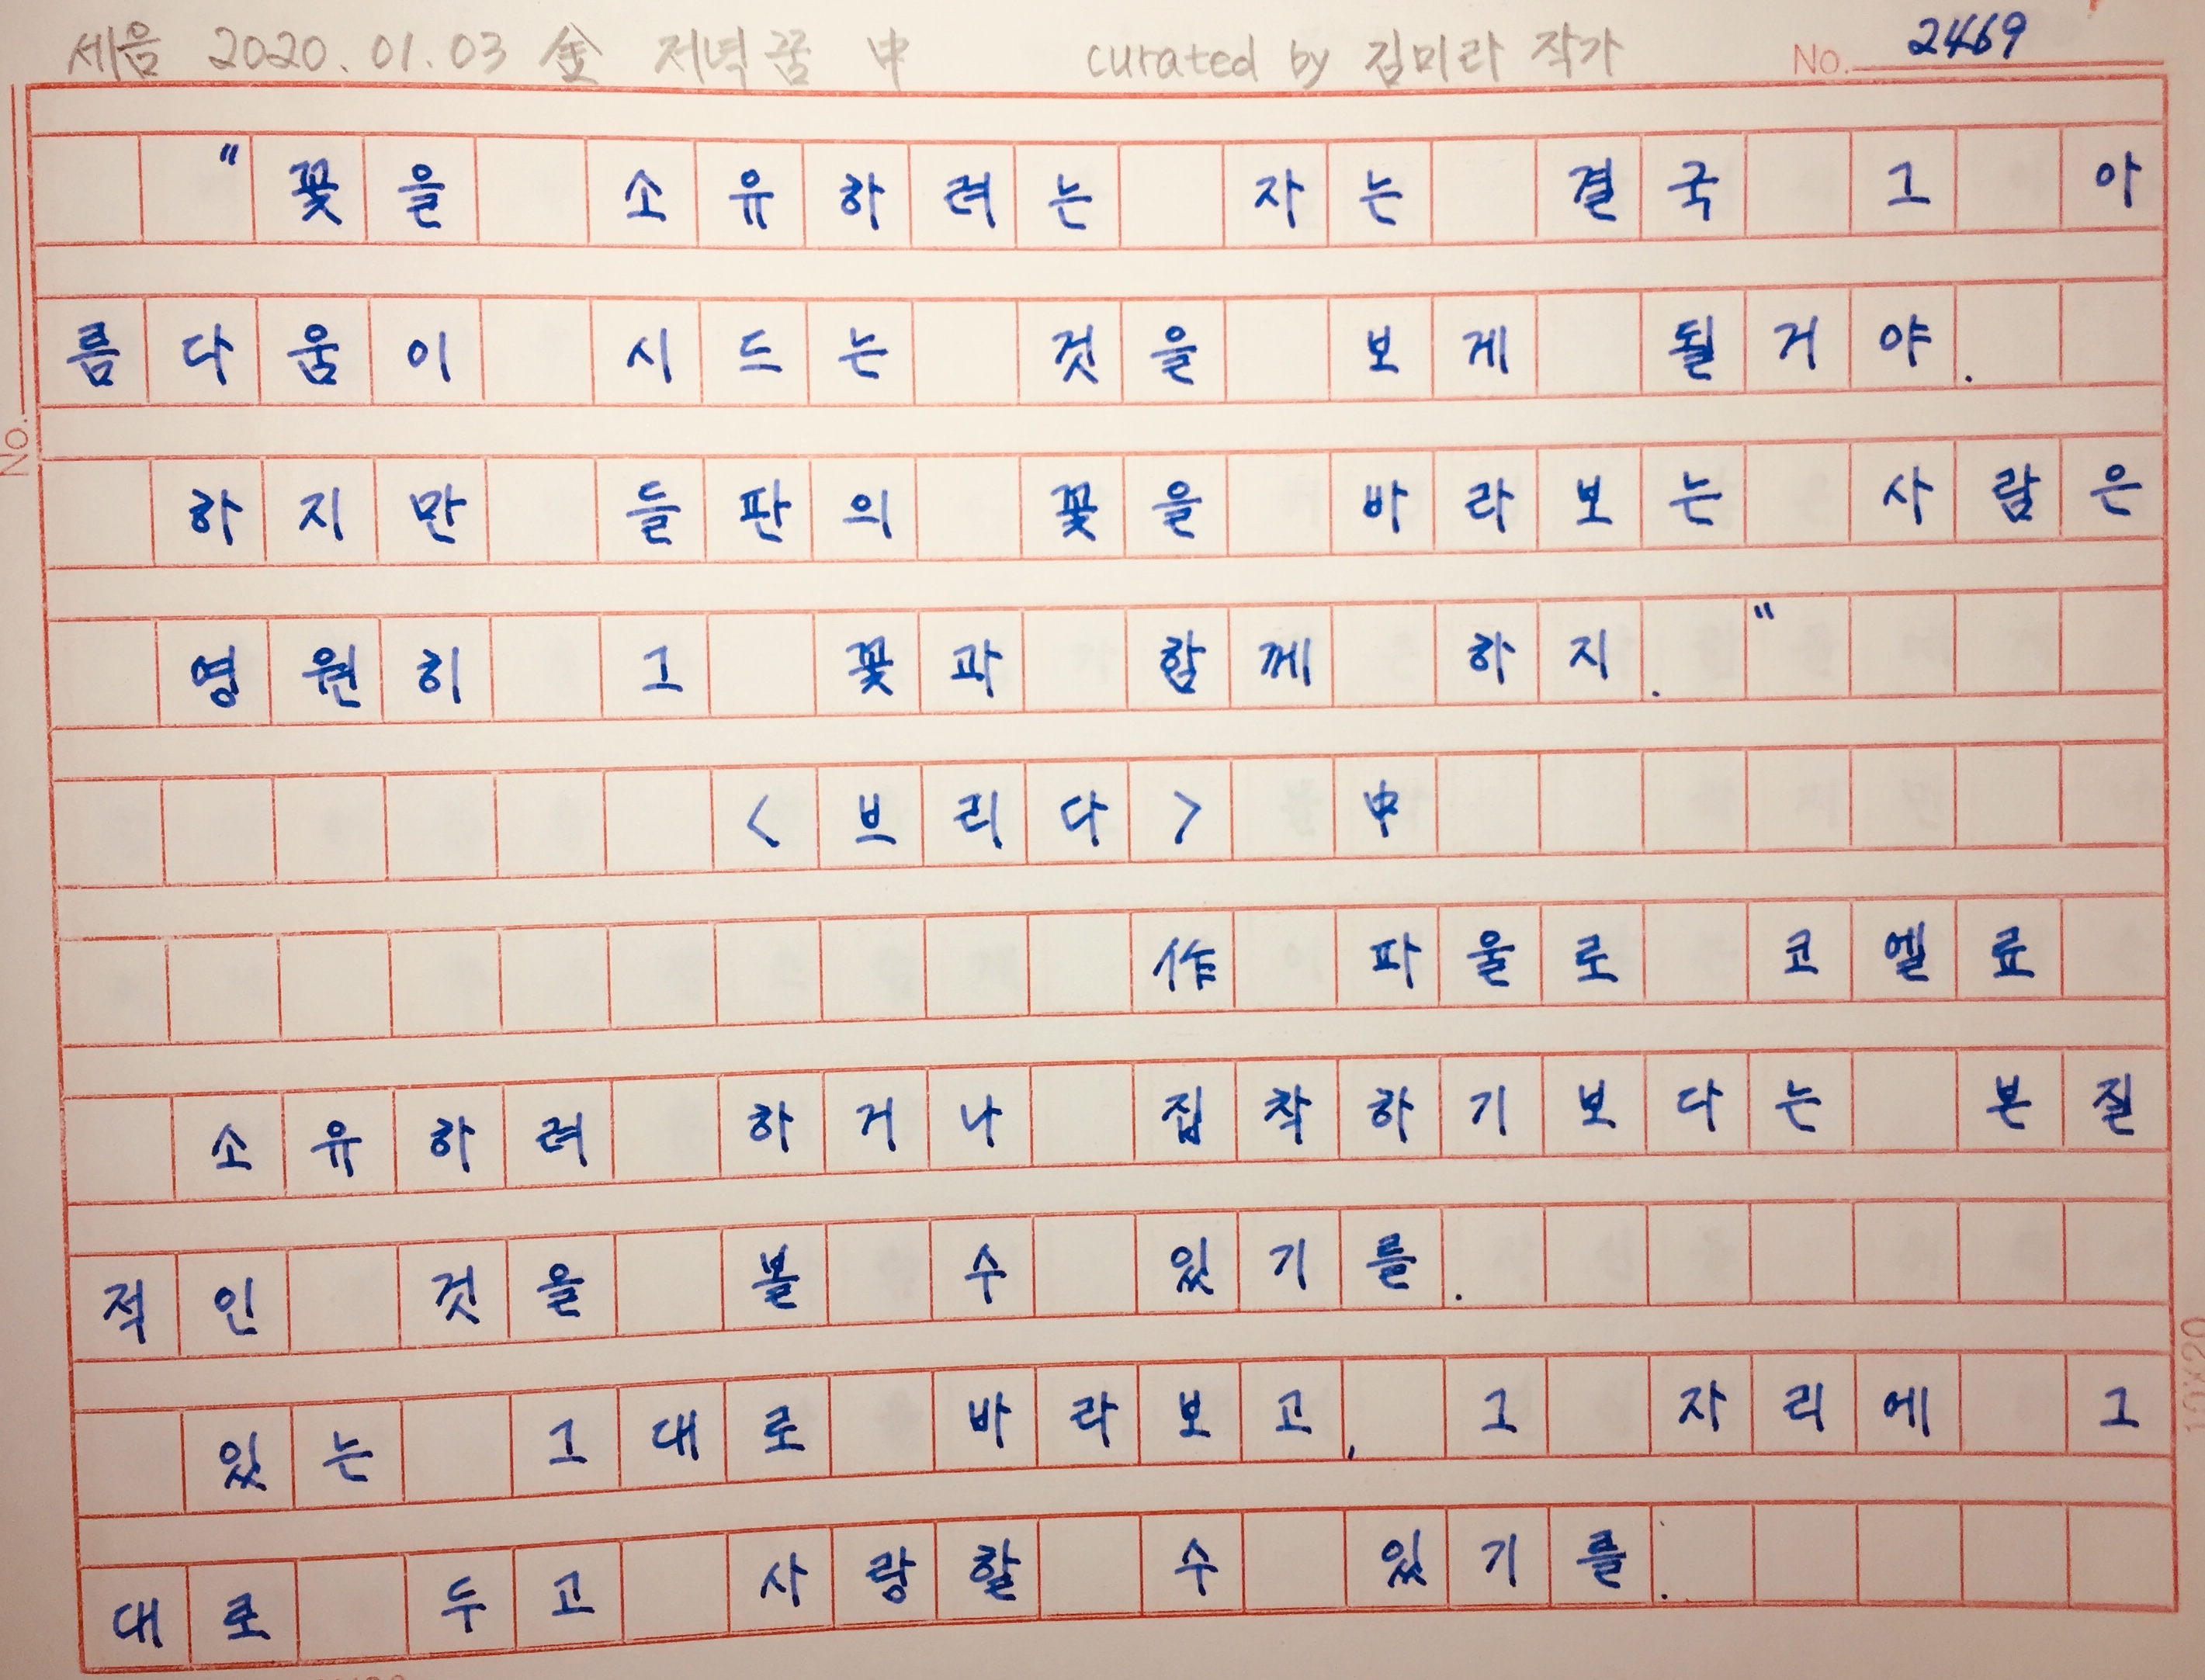 세음 2020.01.03 金 저녁꿈 中 curated by 김미라 작가 No. 2469
"꽃을 소유하려는 자는 결국 그 아
름다움이 시드는 것을 보게 될거야.
하지만 들판의 꽃을 바라보는 사람은
영원히 그 꽃과 함께 하지."
<브리다> 中
作 파울로 코엘료
소유하려 하거나 집착하기보다는 본질
적인 것을 볼 수 있기를.
있는 그대로 바라보고, 그 자리에 그
대로 두고 사랑할 수 있기를.
No.